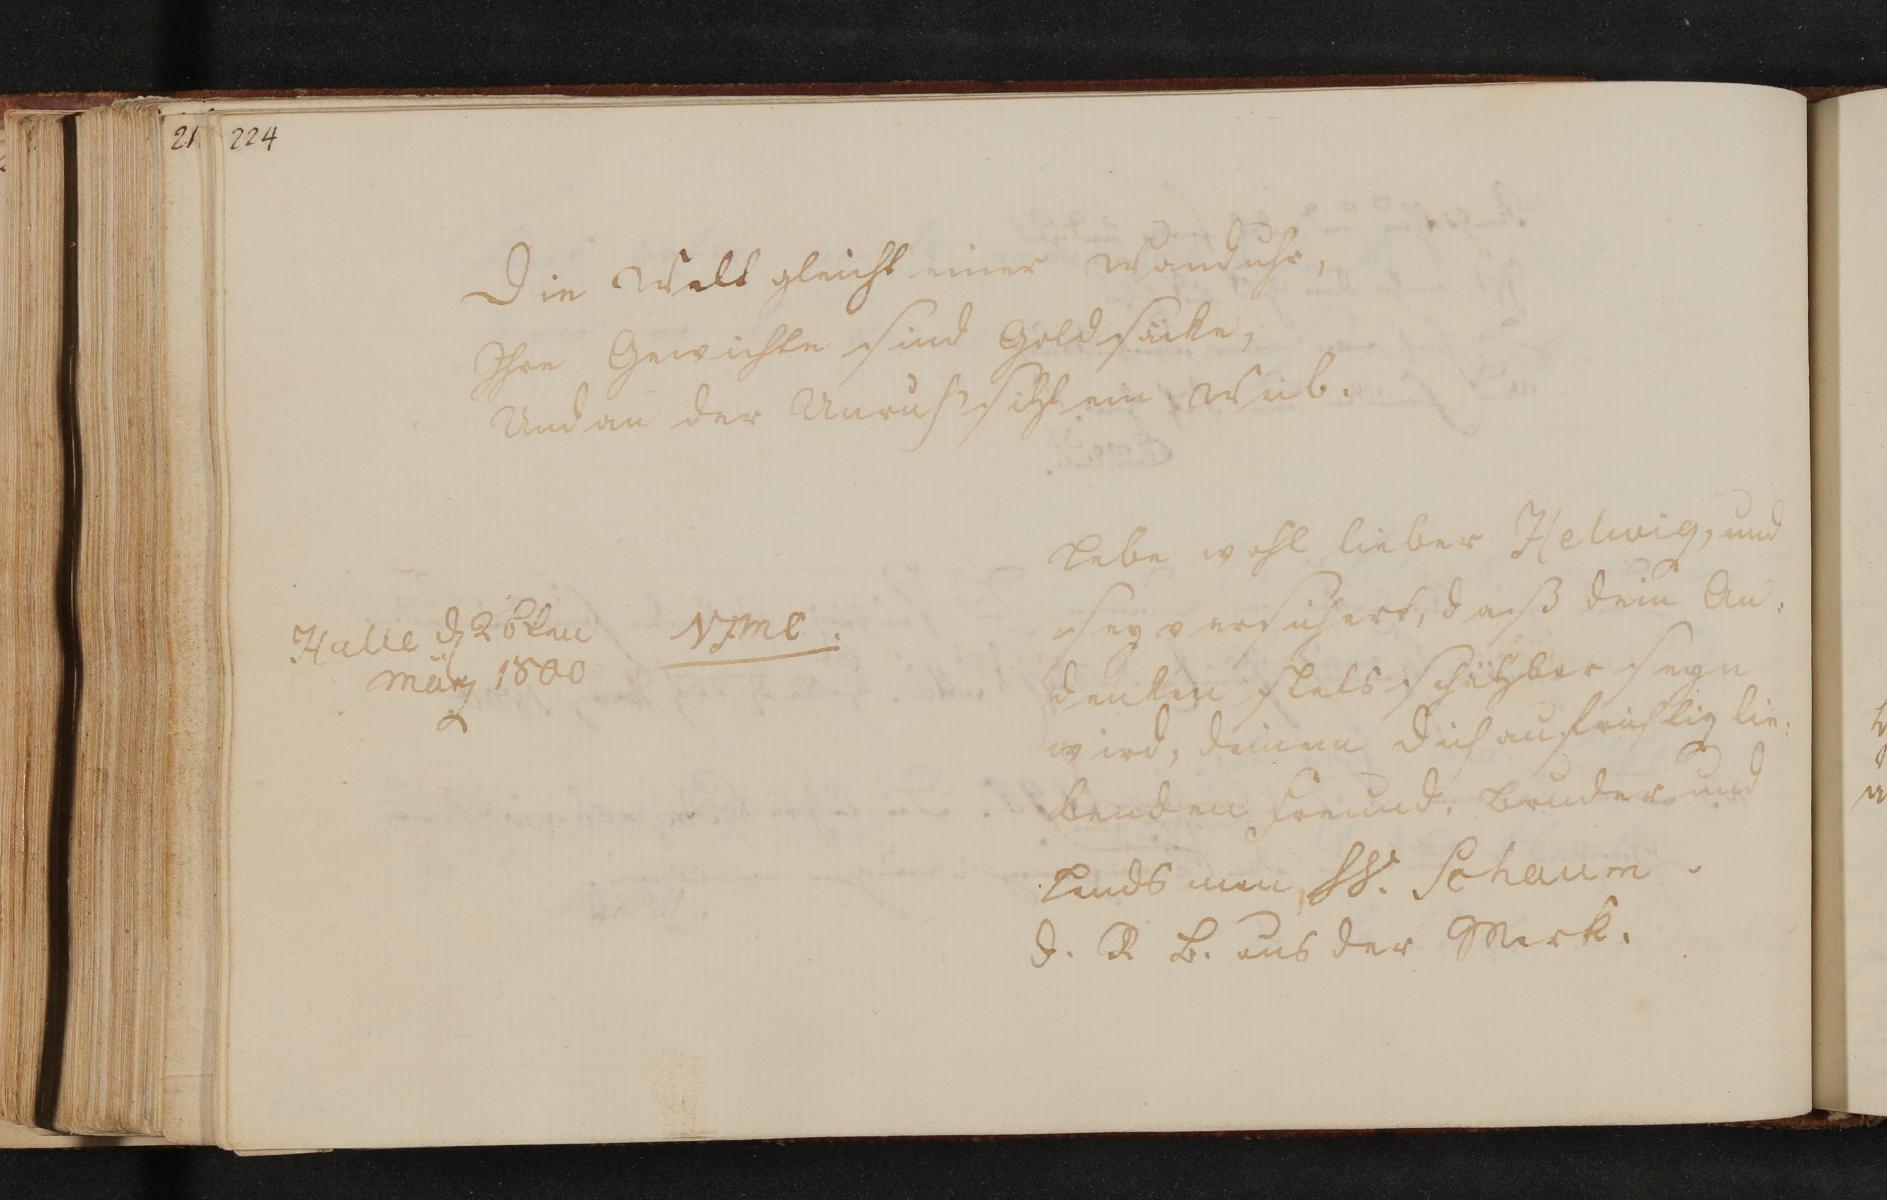 21 224
Die Welt gleicht einer Wanduhr,
Ihre Gewichte sind Goldsäcke,
Und an der Unruh sitzt ein Weib.
Lebe wohl lieber Helwig, und
sey versichert, daß dein An:
denken stets schätzbar seyn
wird, deinem dich aufrichtig lie:
benden Freund, Bruder und
Landsman W. Schaum.
d. R. B. aus der Mark.
Halle d 26ten
März 1800